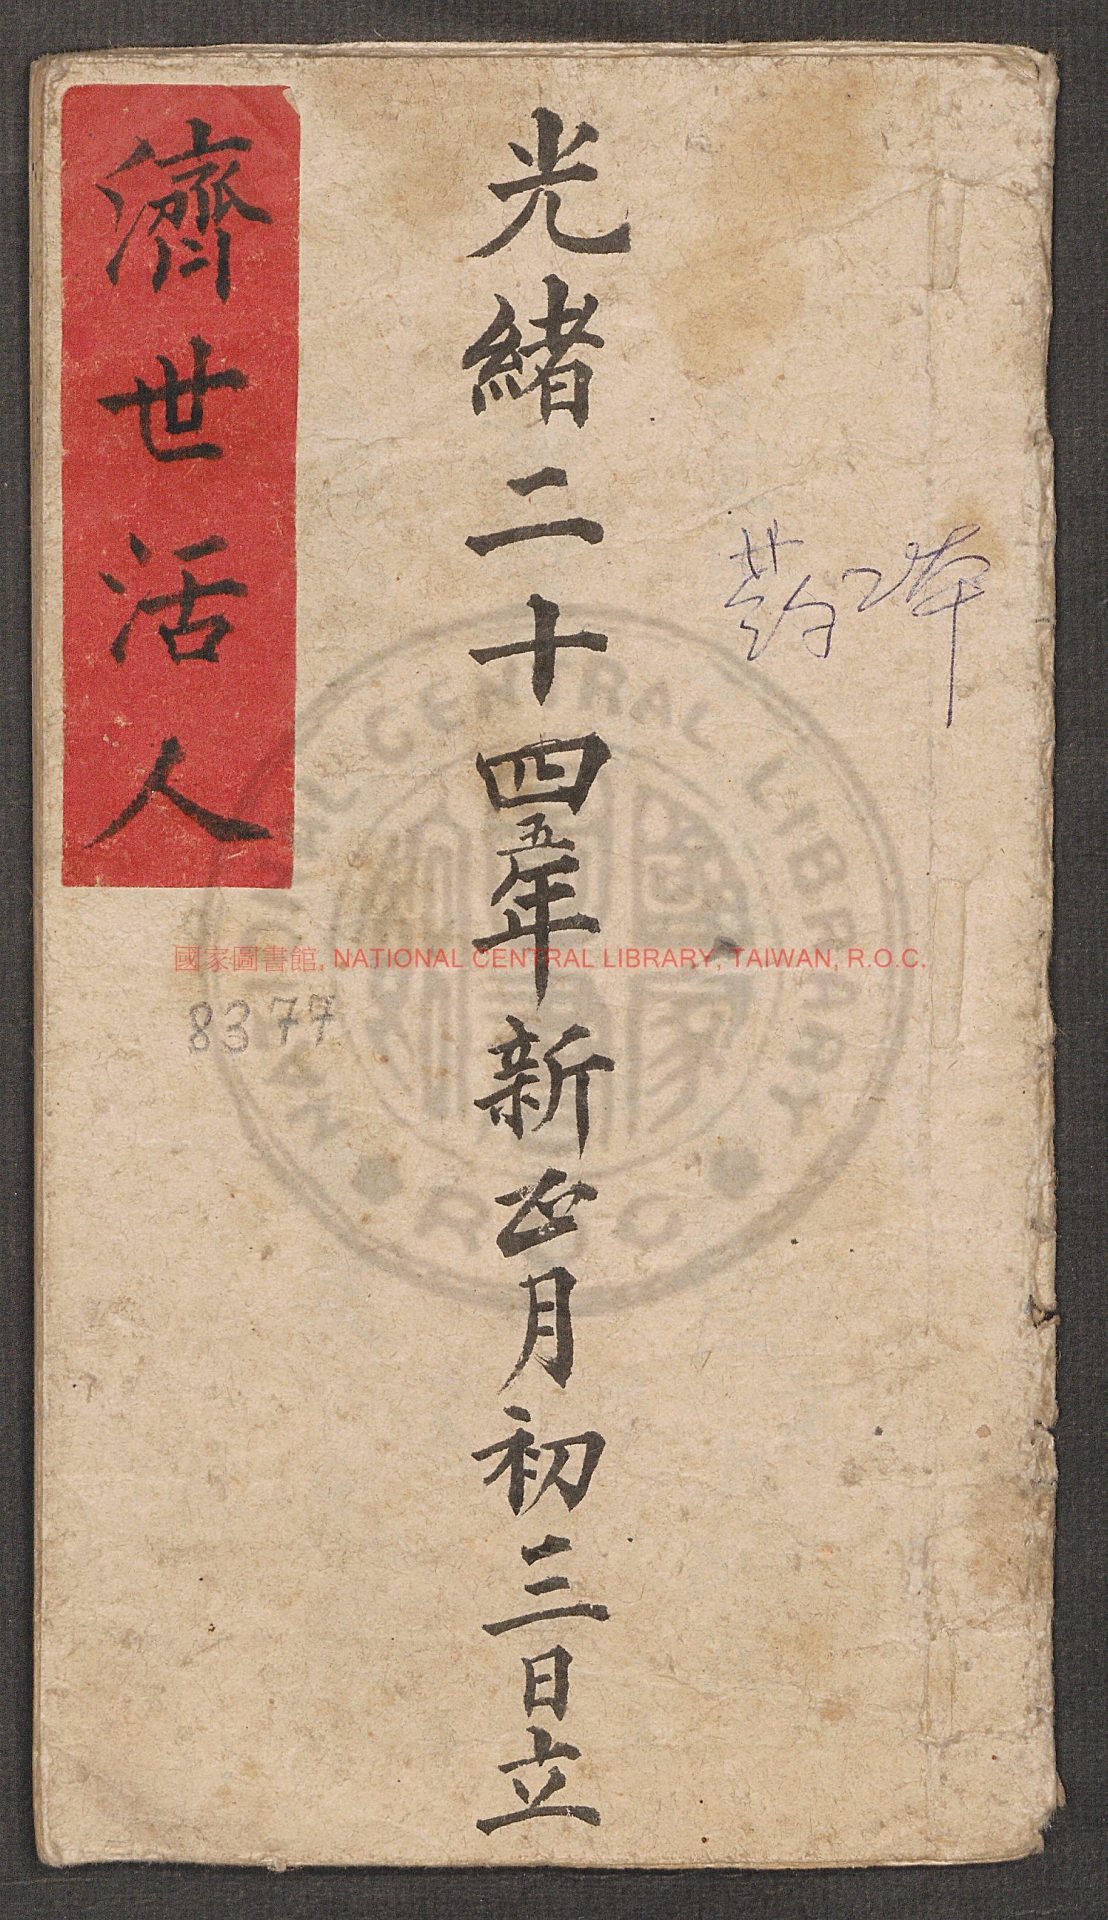 光緒二十四五年新正月初三日立
濟世活人
國家圖書館, NATIONAL CENTRAL LIBRARY, TAIWAN, R.O.C.
8377
NATIONAL CENTRAL LIBRARY
R.O.C